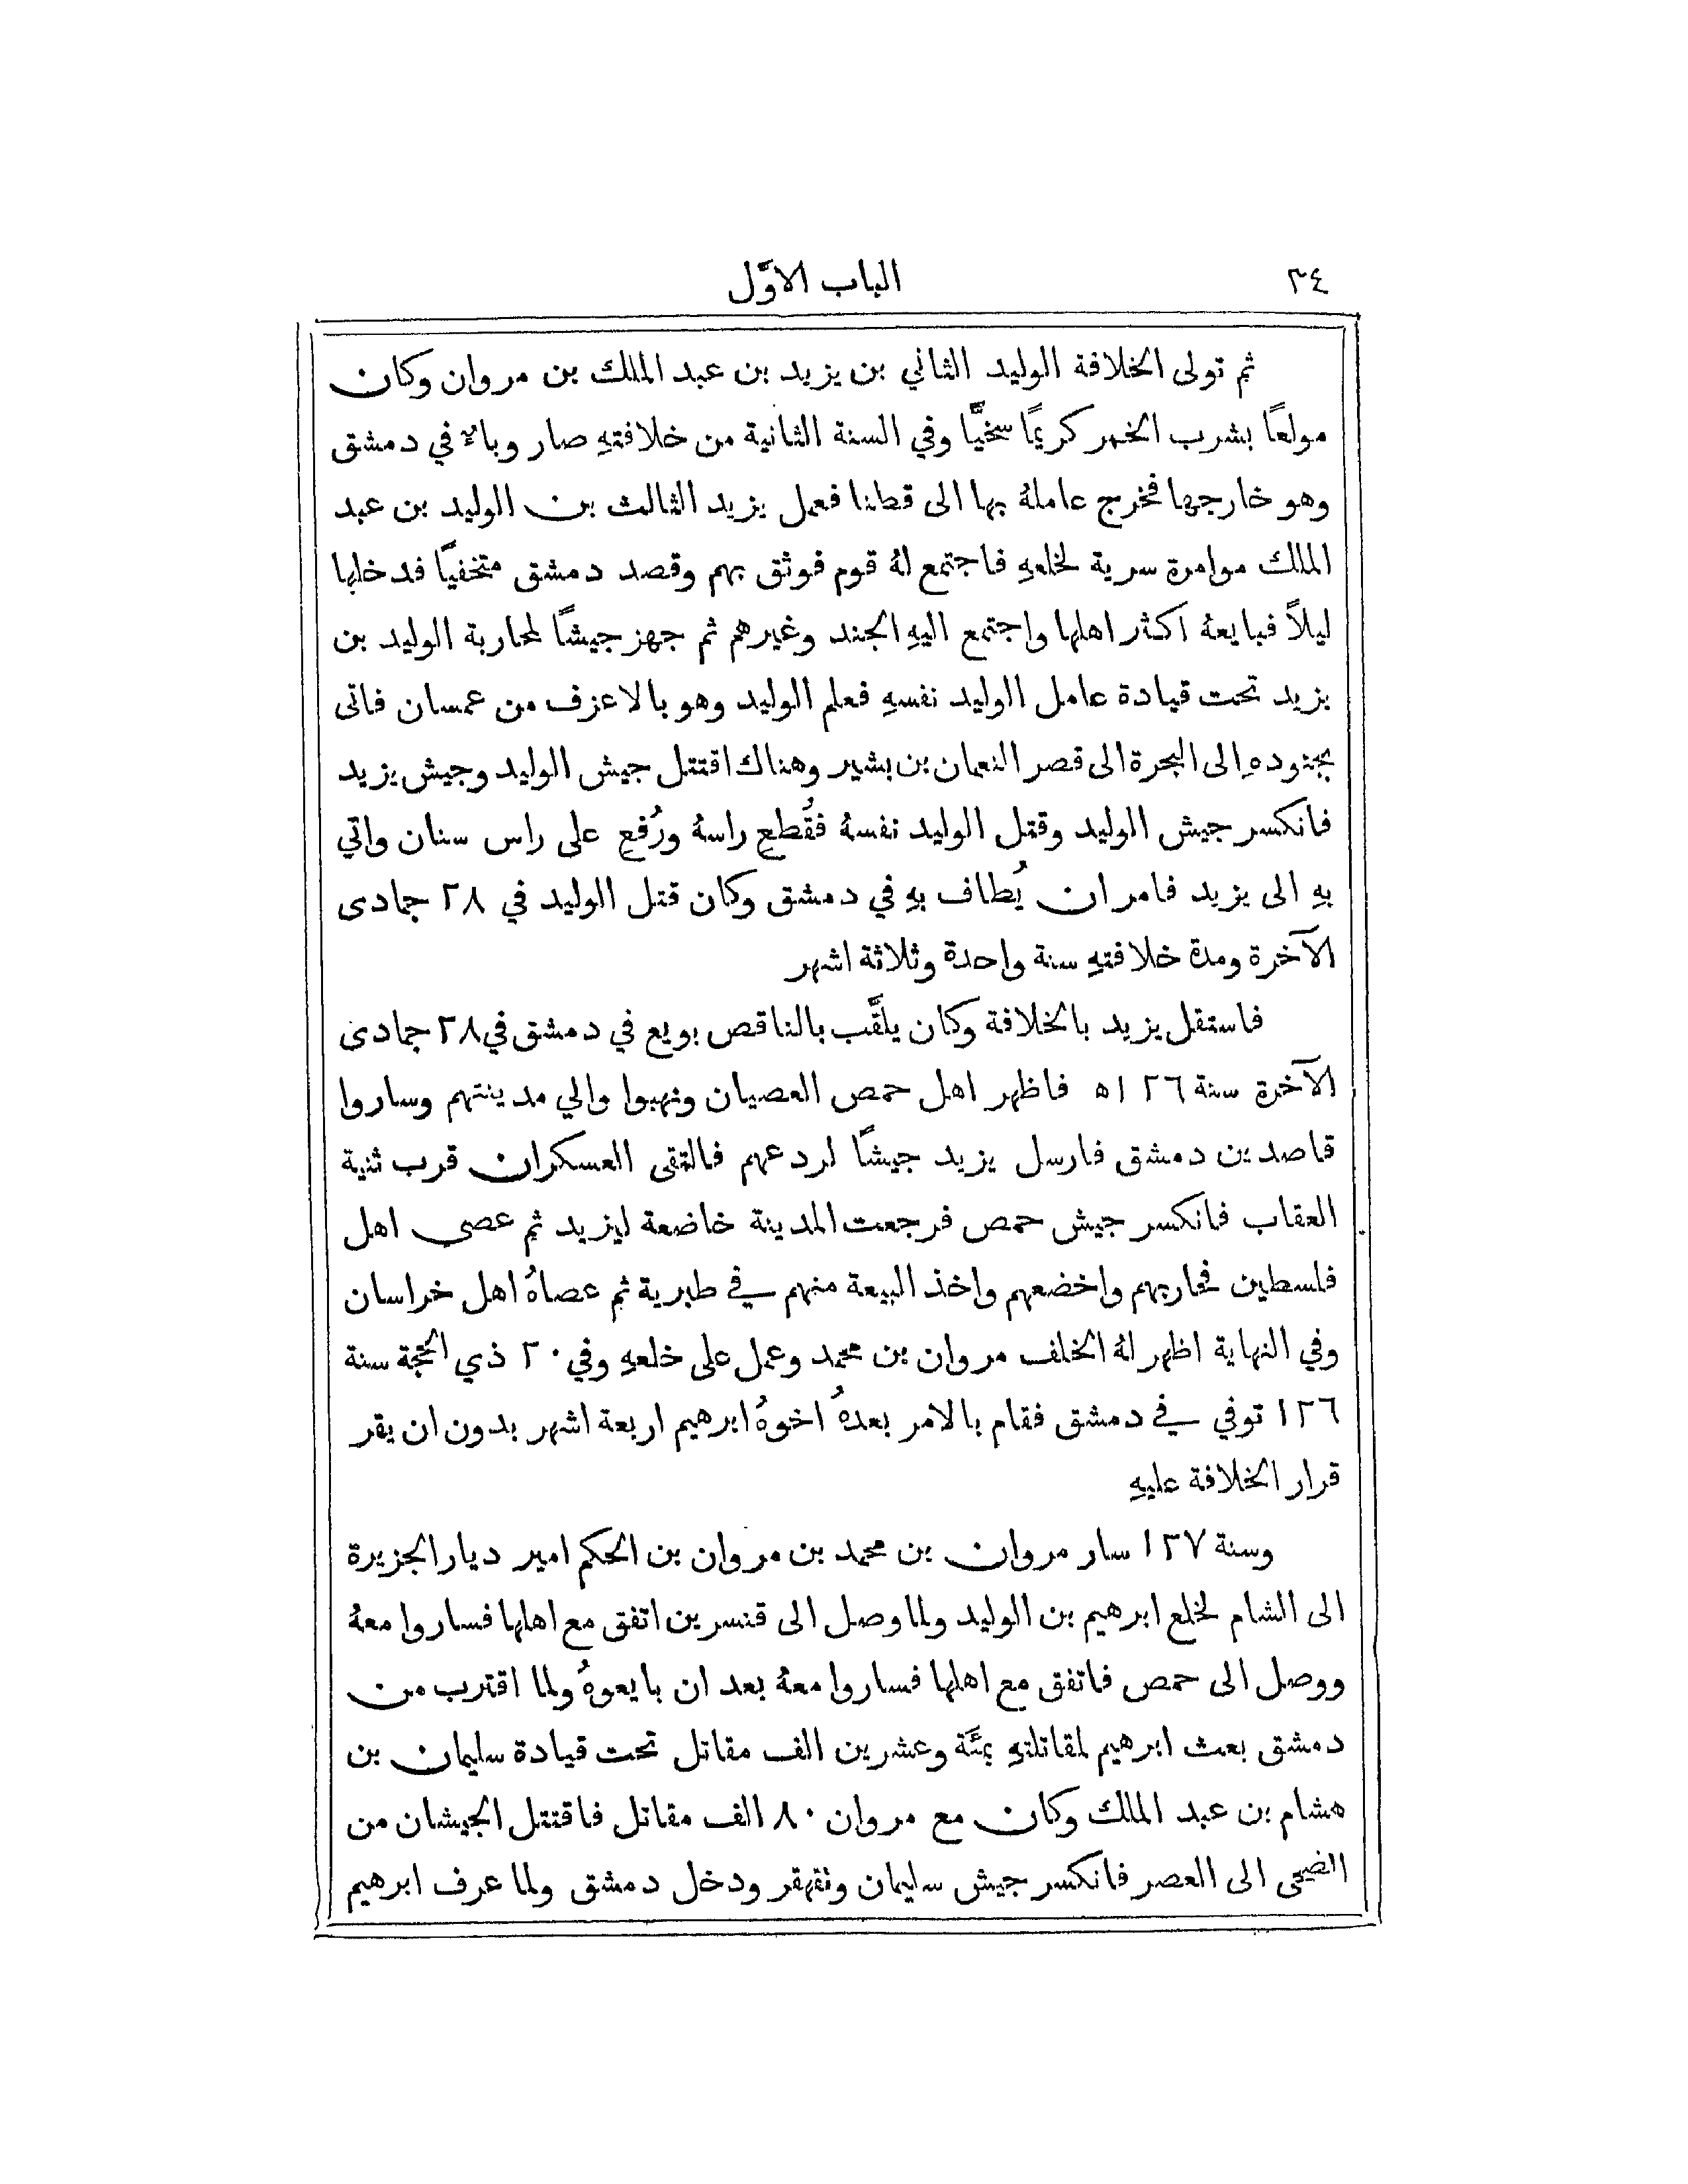 ٣٤
الباب الاوَّل
ثم تولى الخلافة الوليد الثاني بن يزيد بن عبد الملك بن مروان وكان
مولعًا بشرب الخمر كريمًا سخيًّا وفي السنة الثانية من خلافتهِ صار وباء في دمشق
وهو خارجها فخرج عاملهُ بها الى قطنا فعمل يزيد الثالث بن الوليد بن عبد
الملك موامرة سرية لخلعهِ فاجتمع لهُ قوم فوثق بهم وقصد دمشق متخفيًا فدخلها
ليلاً فبايعهُ اكثر اهلها واجتمع اليهِ الجند وغيرهم ثم جهز جيشًا لمحاربة الوليد بن
يزيد تحت قيادة عامل الوليد نفسهِ فعلم الوليد وهو بالاعزف من عمسان فاتى
بجنودهِ الى البحرة الى قصر النعمان بن بشير وهناك اقتتل جيش الوليد وجيش يزيد
فانكسر جيش الوليد وقتل الوليد نفسهُ فقُطع راسهُ ورُفع على راس سنان واتي
بهِ الى يزيد فامر ان يُطاف بهِ في دمشق وكان قتل الوليد في ٢٨ جمادى
الآخرة ومدة خلافتهِ سنة واحدة وثلاثة اشهر
فاستقل يزيد بالخلافة وكان يلقَّب بالناقص بويع في دمشق في ٢٨ جمادى
الآخرة سنة ١٢٦ه فاظهر اهل حمص العصيان ونهبوا والي مدينتهم وساروا
قاصدين دمشق فارسل يزيد جيشًا لردعهم فالتقى العسكران قرب ثنية
العقاب فانكسر جيش حمص فرجعت المدينة خاضعة ليزيد ثم عصى اهل
فلسطين فحاربهم واخضعهم واخذ البيعة منهم في طبرية ثم عصاهُ اهل خراسان
وفي النهاية اظهر لهُ الخلف مروان بن محمد وعمل على خلعهِ وفي ٢٠ ذي الحجة سنة
١٢٦ توفي في دمشق فقام بالامر بعدهُ اخوهُ ابرهيم اربعة اشهر بدون ان يقر
قرار الخلافة عليهِ
وسنة ١٢٧ سار مروان بن محمد بن مروان بن الحكم امير ديار الجزيرة
الى الشام لخلع ابرهيم بن الوليد ولما وصل الى قنسرين اتفق مع اهلها فساروا معهُ
ووصل الى حمص فاتفق مع اهلها فساروا معهُ بعد ان بايعوهُ ولما اقترب من
دمشق بعث ابرهيم لمقاتلتهِ بمئَة وعشرين الف مقاتل تحت قيادة سليمان بن
هشام بن عبد الملك وكان مع مروان ٨٠ الف مقاتل فاقتتل الجيشان من
الضحى الى العصر فانكسر جيش سليمان وتقهقر ودخل دمشق ولما عرف ابرهيم